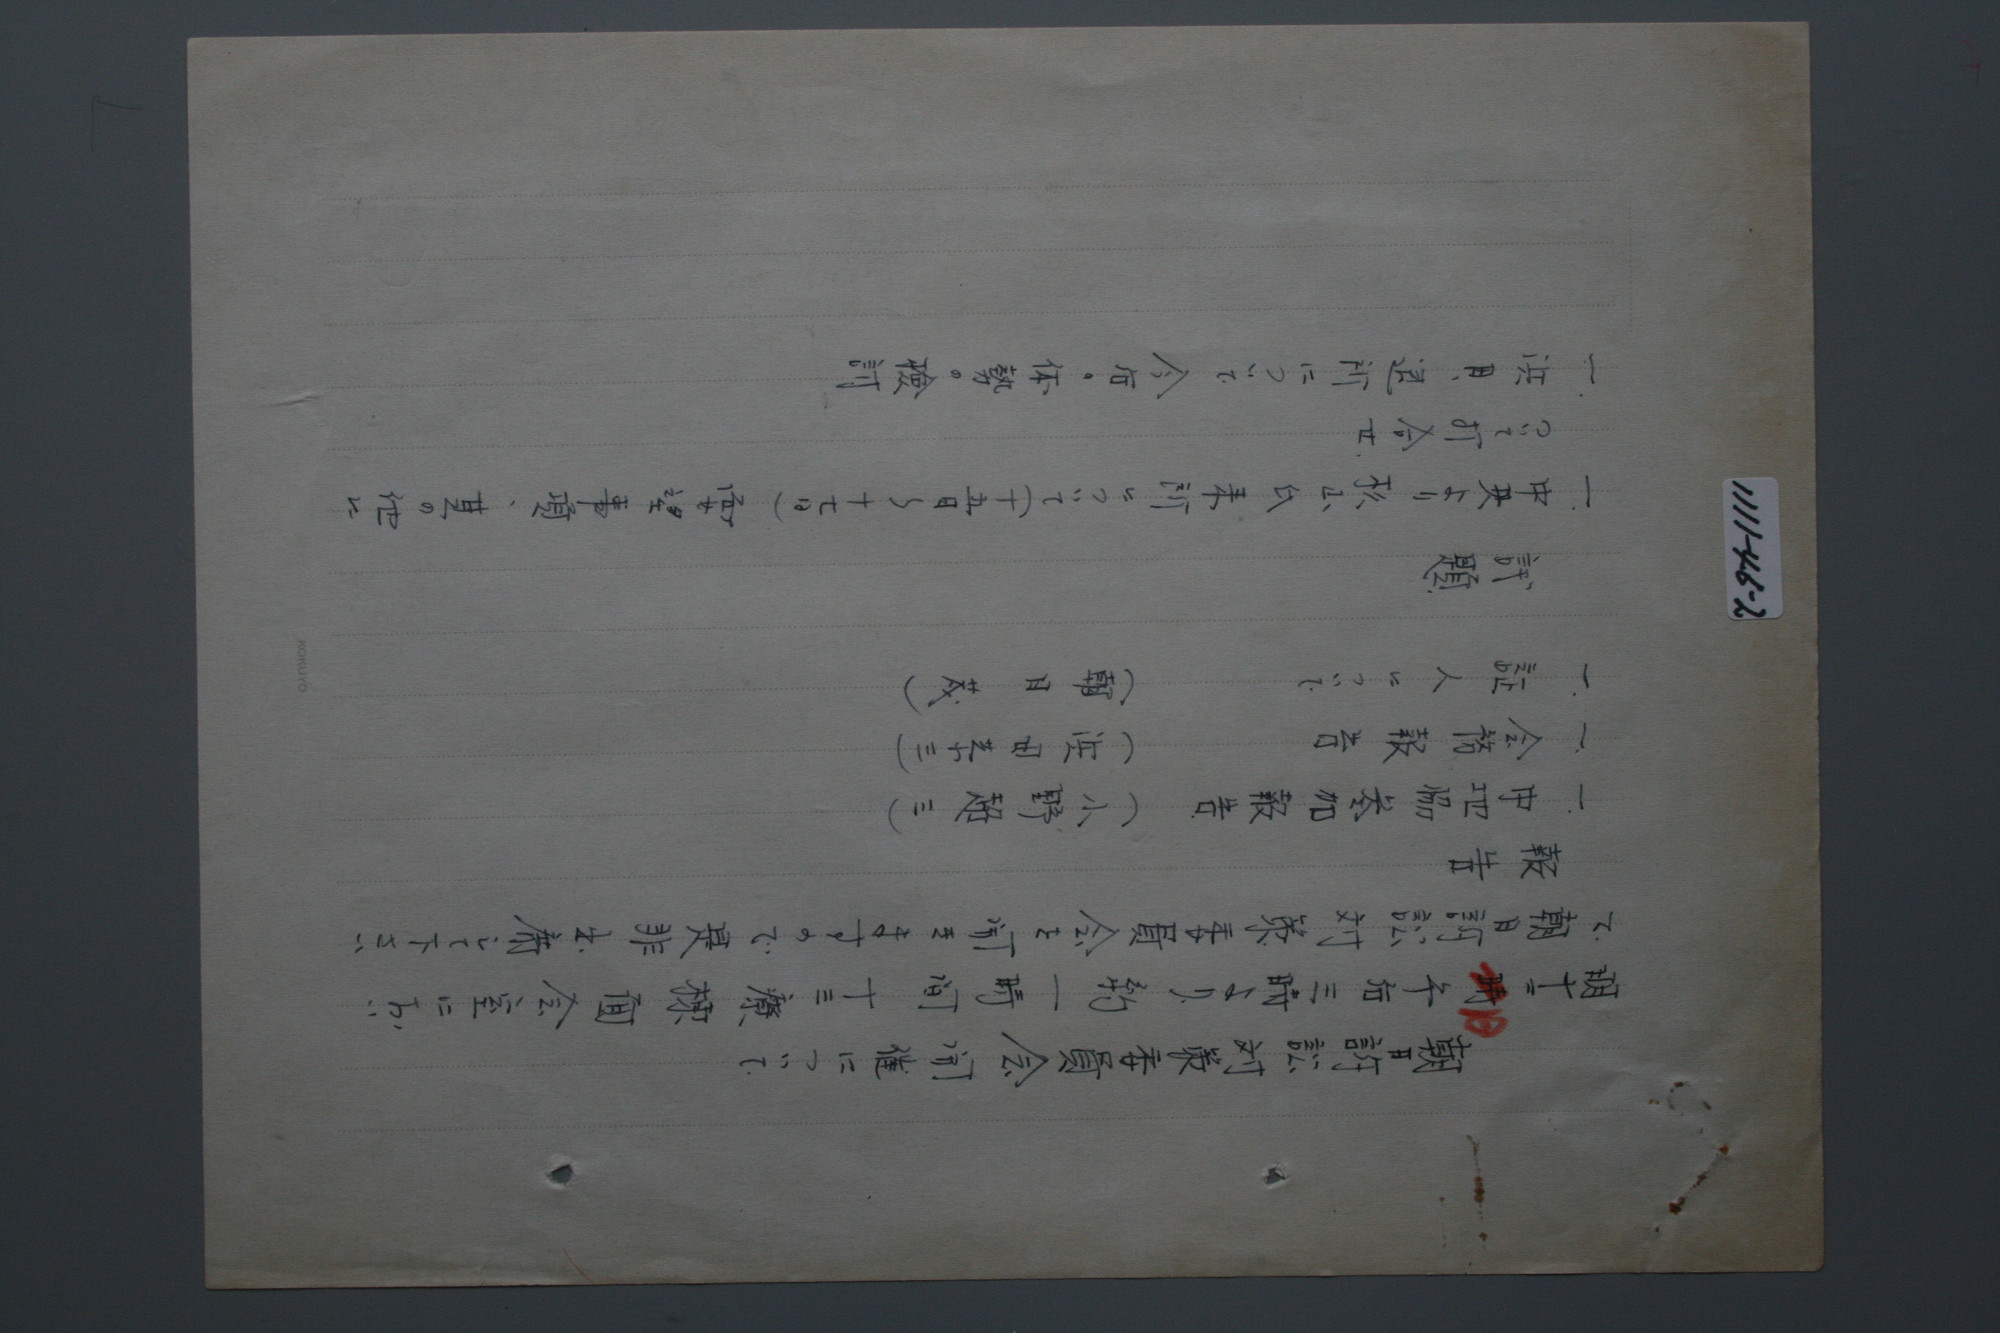 朝日訴訟対策委員会開催について
明十二日午后三時より約一時間十三療棟面会室におい
て朝日訴訟対策委員会を開きますので是非出席して下さい
報告
一、中地協参加報告 (小野 三)
一、会務報告 (近田 三)
一、証人について (朝日茂)
議題
一、中央より 氏来所について(十五日〜十七日)希望事項、其の他に
ついて打合せ
一、近日、退所について今后の体勢の検討
1111-46-2
KOKUYO